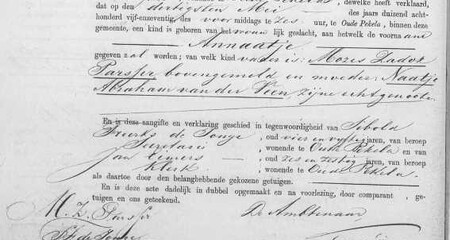 dewelke heeft verklaard,
dat op den dertigsten Mei des jaars duizend acht-
honderd vijf-enzeventig, des voor middags te zes uur, te Oude Pekela, binnen deze
gemeente, een kind is geboren van het vrouwelijk geslacht, aan hetwelk de voorna
Annaatje
gegeven zal worden; van welk kind vader is: Mozes Zadok
Parsser bovengemeld en moeder: Naatje
Abraham van der Veen, zijne echtgenoote.
En is deze aangifte en verklaring geschied in tegenwoordigheid van Sebold
de Jonge, oud vier en vijftig jaren, van beroep
Secretaris wonende te Oude Pekela en
Jan oud zes en zestig jaren, van beroep
Klerk wonende te Oude Pekela.
als daartoe door den belanghebbende gekozene getuigen.
En is deze acte dadelijk in dubbel opgemaakt en na voorlezing, door comparant, ge-
tuigen en ons geteekend.
M. Z. Parsser De Ambtenaar
de Jonge